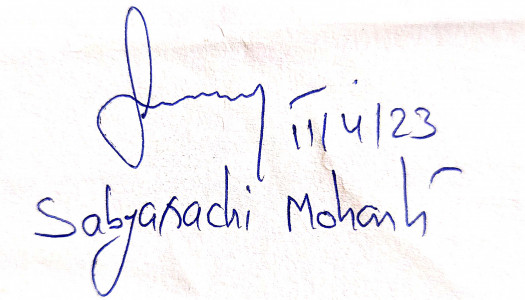 11/4/23
Sabyasachi Mohanti